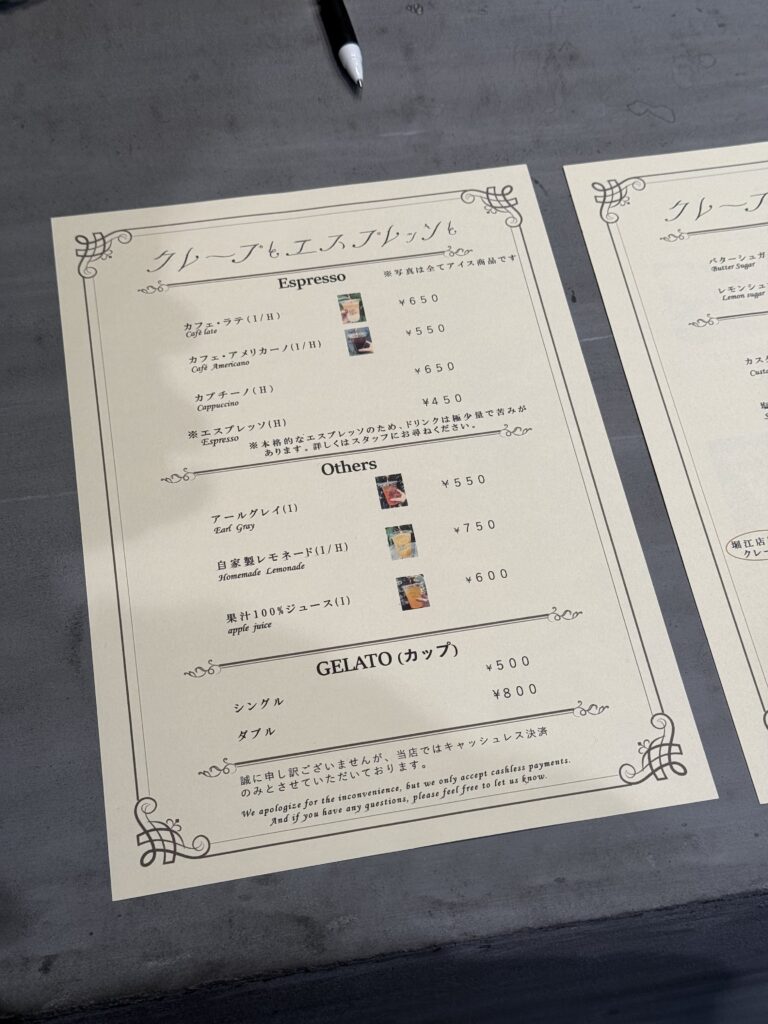 クレープとエスプレッソと
Espresso
※写真は全てアイス商品です
カフェ・ラテ(I/H)
¥650
Café late
カフェ・アメリカーノ(I/H)
¥550
Café Americano
カプチーノ(H)
¥650
Cappuccino
※エスプレッソ(H)
¥450
Espresso
※本格的なエスプレッソのため、ドリンクは極少量で苦みが
あります。詳しくはスタッフにお尋ねください。
Others
アールグレイ(I)
¥550
Earl Gray
自家製レモネード(I/H)
¥750
Homemade Lemonade
果汁100%ジュース(I)
¥600
apple juice
GELATO (カップ)
シングル
¥500
ダブル
¥800
誠に申し訳ございませんが、当店ではキャッシュレス決済
のみとさせていただいております。
We apologize for the inconvenience, but we only accept cashless payments.
And if you have any questions, please feel free to let us know.
クレープ
バターシュガ
Butter Sugar
レモンシュ
Lemon sugar
カスタ
Custa
塩
堀江店
クレー